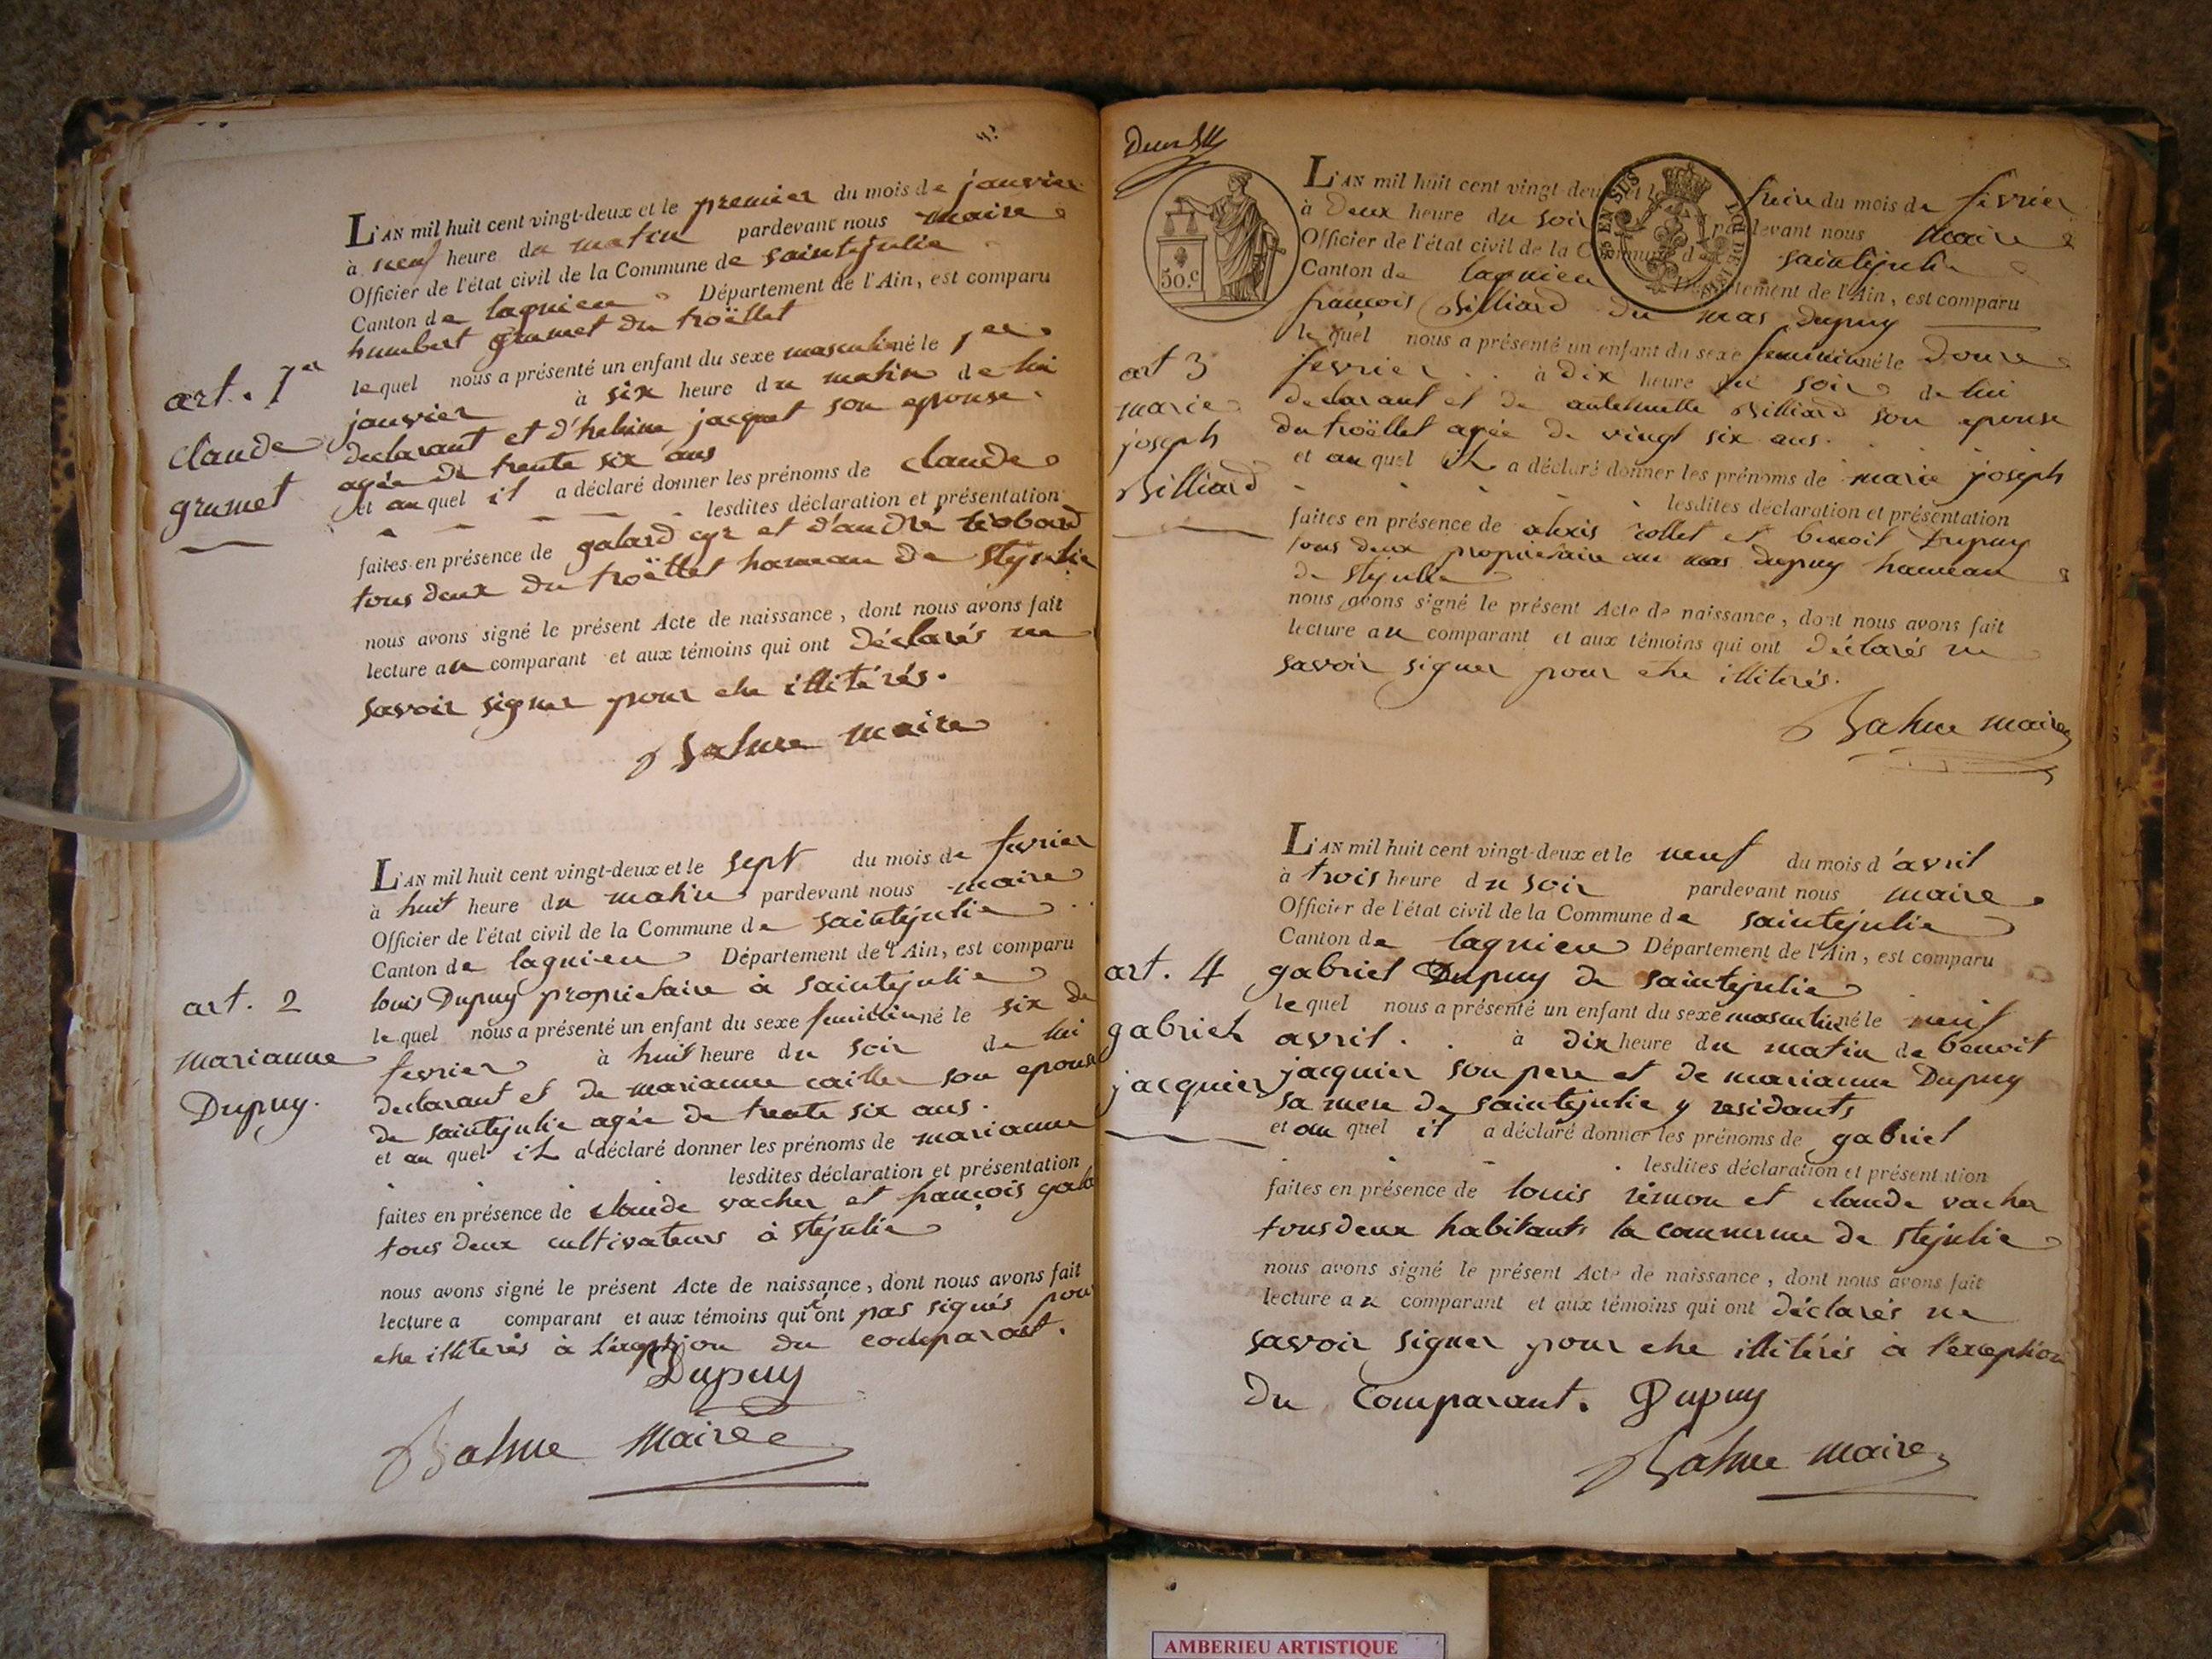 L'AN mil huit cent vingt-deux et le premier du mois de janvier
à neuf heure du matin pardevant nous maire
Officier de l'état civil de la Commune de saintejulie
Canton de lagnieu Département de l'Ain, est comparu
humbert grumet du troëllet
lequel nous a présenté un enfant du sexe masculin né le 1er
janvier à six heure du matin de lui
declarant et d'helaine jacquet son epouse
agée de trente six ans
et au quel il a déclaré donner les prénoms de claude
lesdites déclaration et présentation
faites en présence de galard cyr et d'andré
tous deux du troëllet hameau de stejulie
nous avons signé le présent Acte de naissance, dont nous avons fait
lecture au comparant et aux témoins qui ont déclarés ne
savoir signer pour etre illitérés.
maire
art. 1er
claude
grumet
L'AN mil huit cent vingt-deux et le sept du mois de fevrier
à huit heure du matin pardevant nous maire
Officier de l'état civil de la Commune de saintejulie
Canton de lagnieu Département de l'Ain, est comparu
louis Dupuy proprietaire à saintejulie
lequel nous a présenté un enfant du sexe feminin né le six de
fevrier à huit heure du soir de lui
declarant et de marianne cailler son epouse
de saintejulie agée de trente six ans.
et au quel il a déclaré donner les prénoms de marianne
lesdites déclaration et présentation
faites en présence de claude vacher et françois
tous deux cultivateurs à stejulie
nous avons signé le présent Acte de naissance, dont nous avons fait
lecture a comparant et aux témoins qui n'ont pas signés pour
etre illiterés à l'exeption du comparant.
Dupuy
Maire
art. 2
marianne
Dupuy.
50.c
L'AN mil huit cent vingt-deux et le treize du mois de fevrier
à Deux heure du soir pardevant nous maire
Officier de l'état civil de la Commune de saintejulie
Canton de lagnieu Département de l'Ain, est comparu
françois Billiard du mas dupuy
lequel nous a présenté un enfant du sexe feminin né le Douze
fevrier à dix heure du soir de lui
declarant et de antelmette Billiard son epouse
du troëllet agée de vingt six ans.
et au quel il a déclaré donner les prénoms de marie joseph
lesdites déclaration et présentation
faites en présence de alexis rollet et benoit Dupuy
tous deux proprietaire au mas dupuy hameau
de stejulie
nous avons signé le présent Acte de naissance, dont nous avons fait
lecture au comparant et aux témoins qui ont déclarés ne
savoir signer pour etre illiterés.
maire
art 3
marie
joseph
Billiard
L'AN mil huit cent vingt-deux et le neuf du mois d'avril
à trois heure du soir pardevant nous maire
Officier de l'état civil de la Commune de saintejulie
Canton de lagnieu Département de l'Ain, est comparu
gabriel Dupuy de saintejulie
lequel nous a présenté un enfant du sexe masculin né le neuf
avril. à dix heure du matin de benoit
jacquier son pere et de marianne Dupuy
sa mere de saintejulie y residants
et au quel il a déclaré donner les prénoms de gabriel
lesdites déclaration et présentation
faites en présence de louis rémon et claude vacher
tous deux habitants la commune de stejulie
nous avons signé le présent Acte de naissance, dont nous avons fait
lecture au comparant et aux témoins qui ont déclarés ne
savoir signer pour etre illitérés à l'exception
du Comparant. Dupuy
maire
art. 4
gabriel
jacquier
AMBERIEU ARTISTIQUE